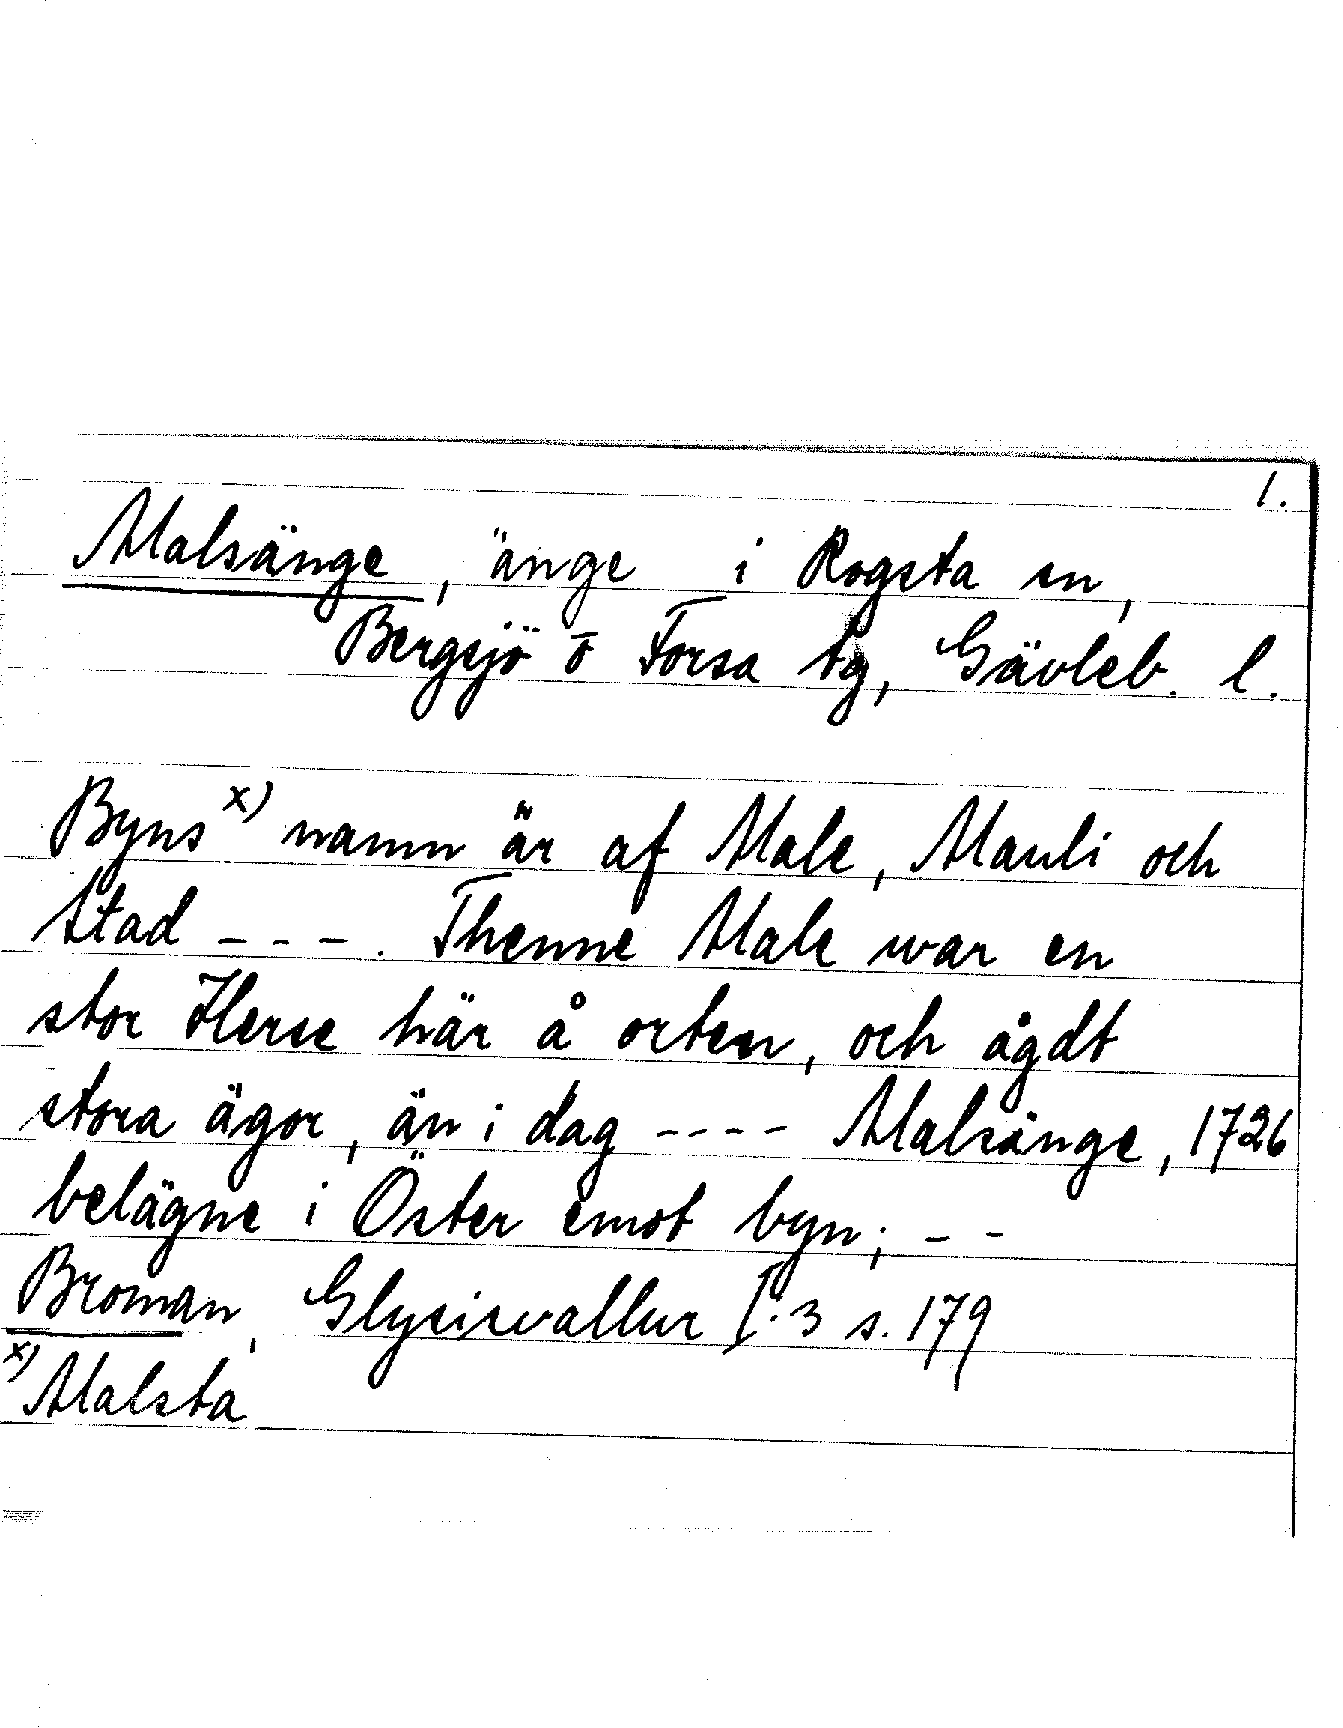 1.
Malsänge, änge i Rogsta sn,
Bergsjö o Forsa tg, Gävleb. l.
Byns x) namn är af Male, Mauli och
stad - - - . Thenne Male war en
stor Herse här å orten, och ågdt
stora ägor, än i dag - - - - Malsänge, 1726
belägne i Öster emot byn; - -
Broman, Glysisvallur I.3 s. 179
x) Malsta